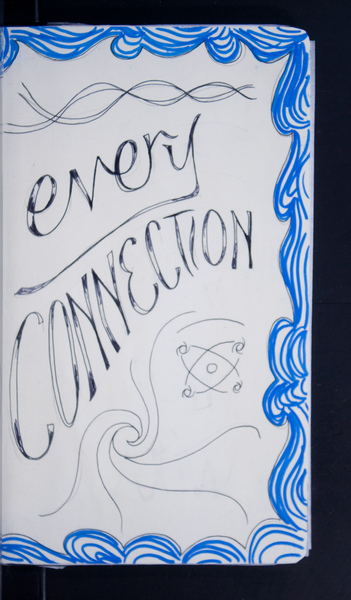 every
CONNECTION